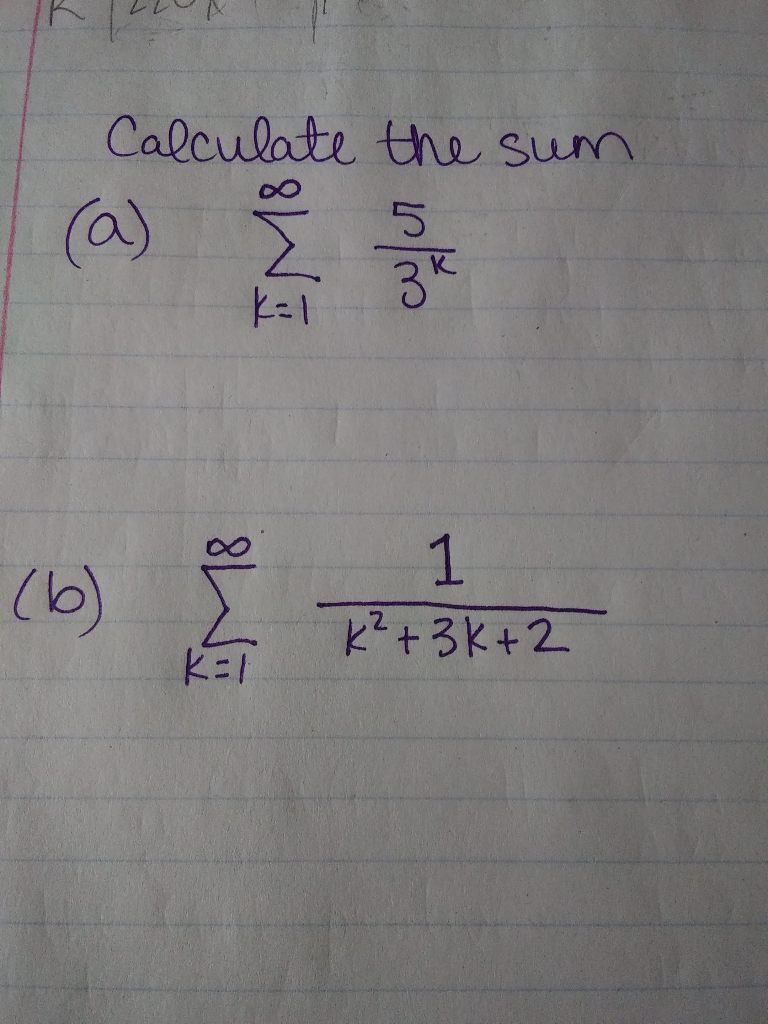 Calculate the sum
(a) ∞ Σ k=1 5/3^k
(b) ∞ Σ k=1 1/(k²+3k+2)